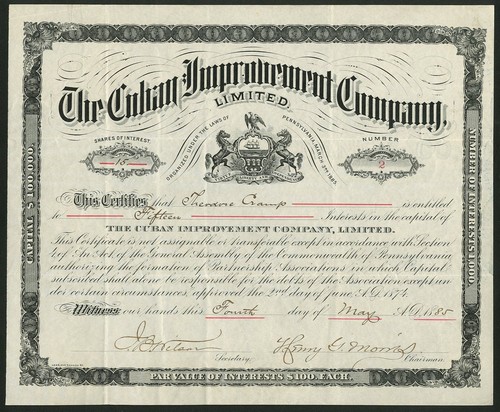 The Cuban Improvement Company,
LIMITED.
SHARES OF INTEREST.
ORGANIZED UNDER THE LAWS OF PENNSYLVANIA,
NUMBER
15
2
This Certifies that Theodore Cramp is entitled
to Fifteen Interests in the capital of
THE CUBAN IMPROVEMENT COMPANY, LIMITED.
This Certificate is not assignable or transferable except in accordance with Section
4 of An Act of the General Assembly of the Commonwealth of Pennsylvania
authorizing the formation of Partnership Associations in which Capital
subscribed shall alone be responsible for the debts of the Association except un-
der certain circumstances, approved the 2nd day of June A.D. 1874.
Witness our hands this Fourth day of May A.D. 1885
Secretary.
Henry G. Morris
Chairman.
CAPITAL $100,000.
NUMBER OF INTERESTS 1,000.
PAR VALUE OF INTERESTS $100. EACH.